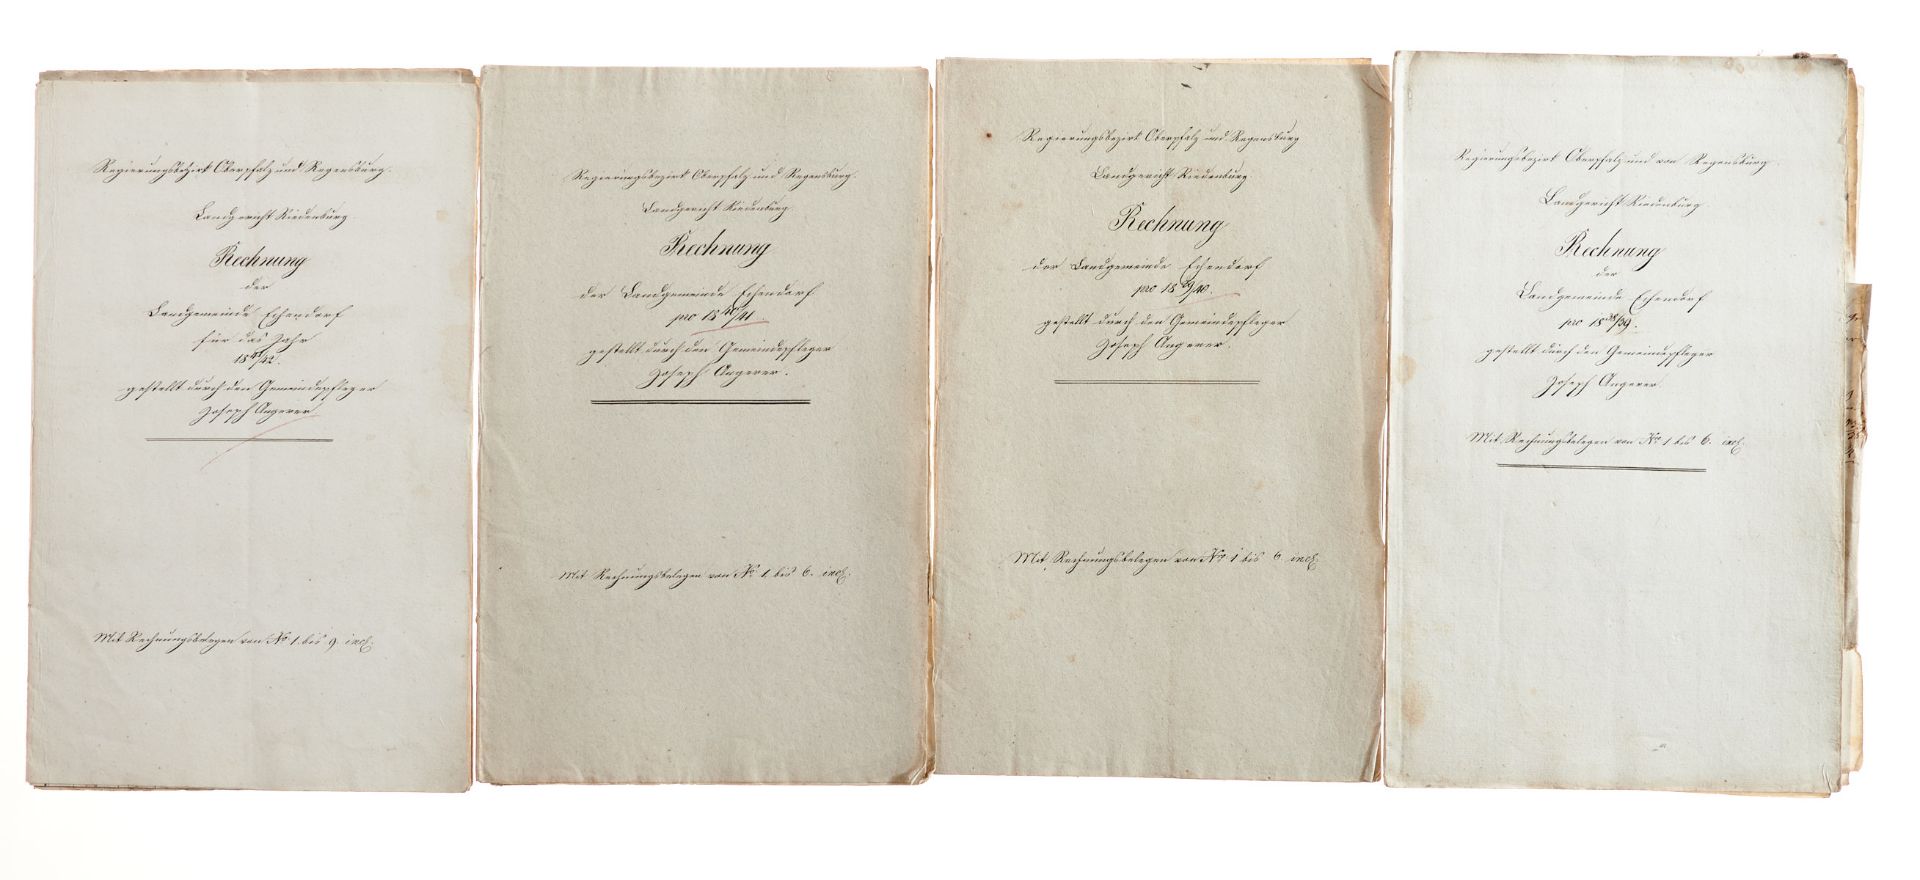 Regierungsbezirk Oberpfalz und Regensburg.
Landgericht Riedenburg.
Rechnung
der
Landgemeinde Echendorf
für das Jahr
18 41/42.
gestellt durch den Gemeindepfleger
Joseph Angerer
Mit Rechnungsbelegen von No. 1. bis 9. incl.
Regierungsbezirk Oberpfalz und Regensburg.
Landgericht Riedenburg.
Rechnung
der Landgemeinde Echendorf
pro 18 40/41.
gestellt durch den Gemeindepfleger
Joseph Angerer.
Mit Rechnungsbelegen von No. 1. bis 6. incl.
Regierungsbezirk Oberpfalz und Regensburg
Landgericht Riedenburg.
Rechnung
der Landgemeinde Echendorf
pro 18 39/40.
gestellt durch den Gemeindepfleger
Joseph Angerer.
Mit Rechnungsbelegen von No. 1 bis 6. incl.
Regierungsbezirk Oberpfalz und von Regensburg.
Landgericht Riedenburg.
Rechnung
der
Landgemeinde Echendorf
pro 18 38/39.
gestellt durch den Gemeindepfleger
Joseph Angerer.
Mit Rechnungsbelegen von No. 1 bis 6. incl.